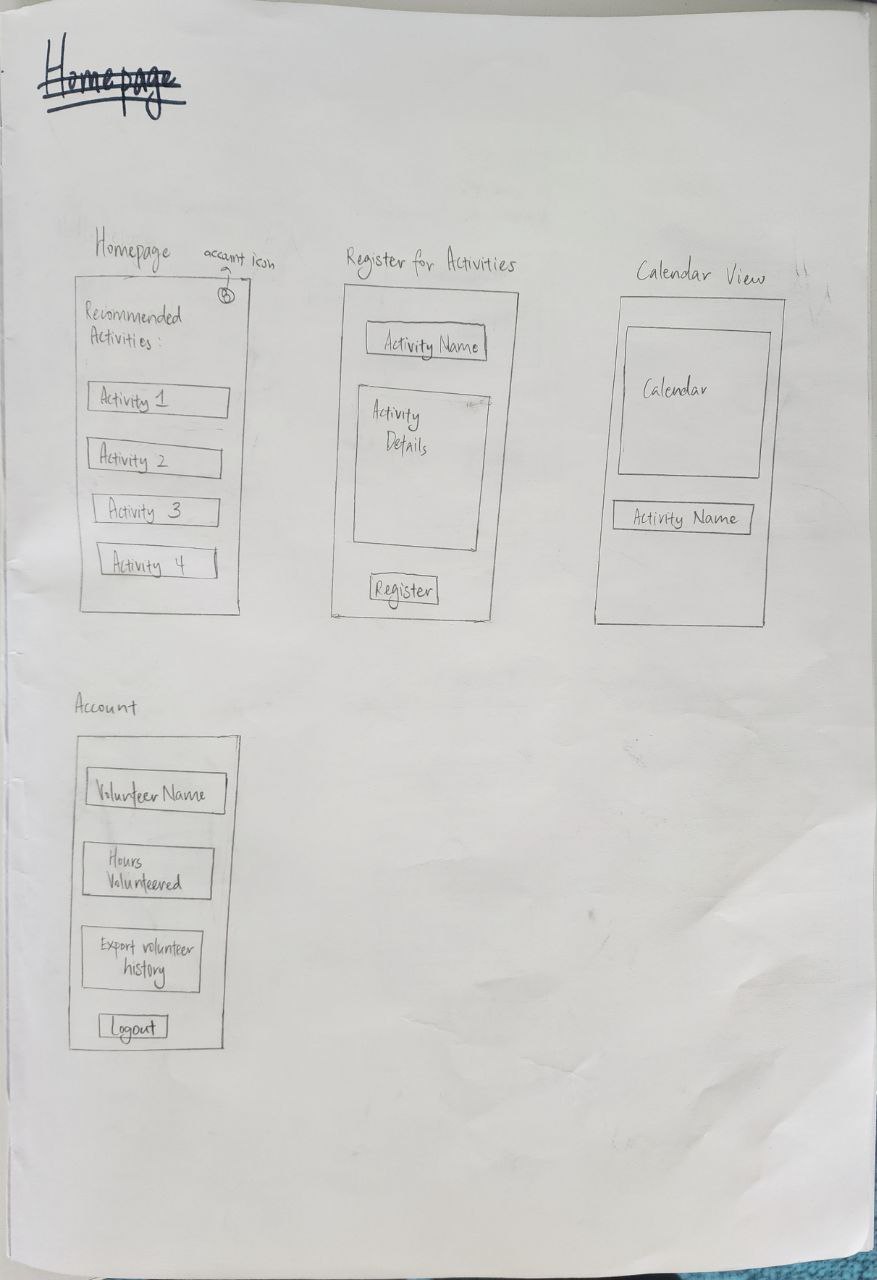 Homepage
Homepage
account icon
Recommended
Activities :
Activity 1
Activity 2
Activity 3
Activity 4
Register for Activities
Activity Name
Activity
Details
Register
Calendar View
Calendar
Activity Name
Account
Volunteer Name
Hours
Volunteered
Export volunteer
history
Logout